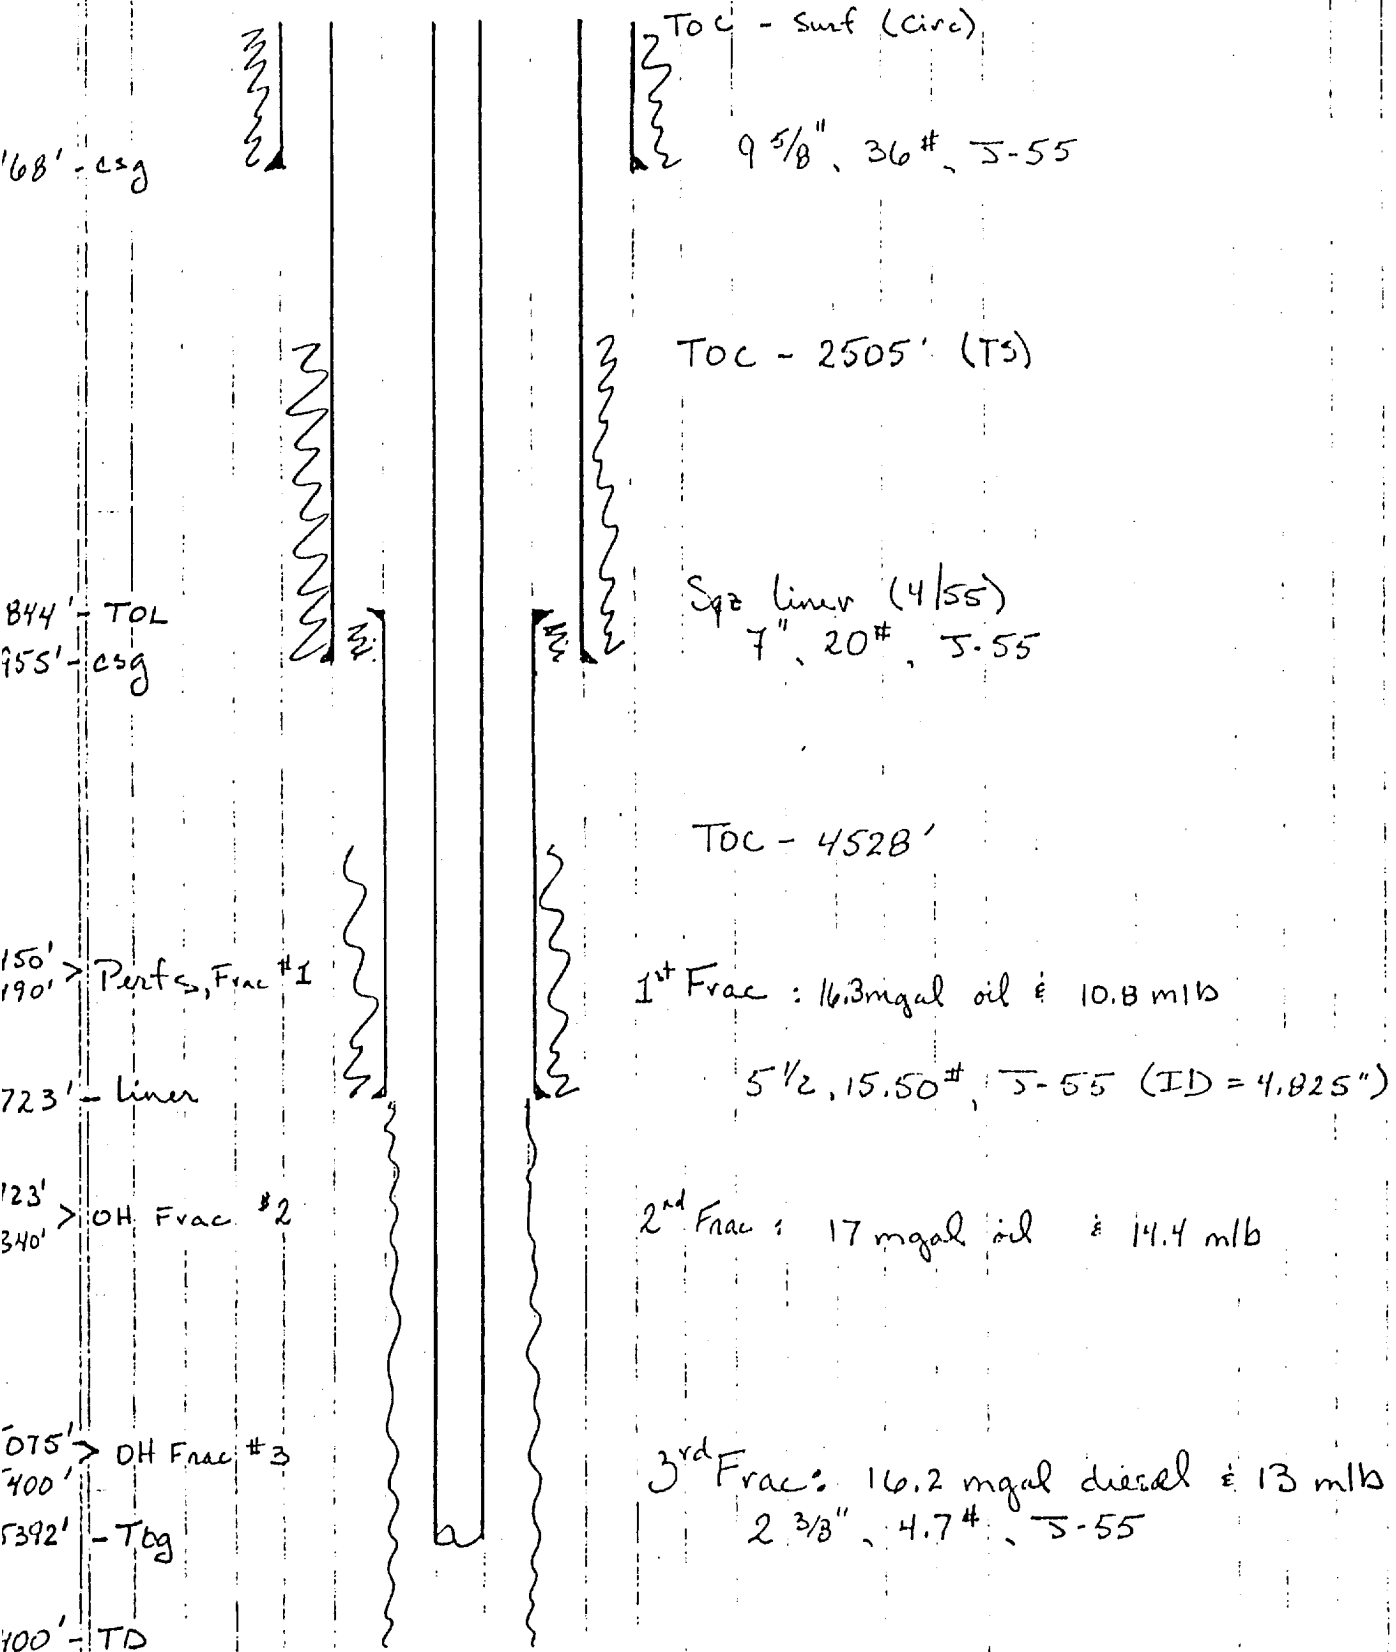 TOC - Surf (Circ)
'68' - csg
9 5/8", 36#, J-55
TOC - 2505' (TS)
844' - TOL
Sqz liner (4/55)
955' - csg
7", 20#, J-55
TOC - 4528'
150'
190' > Perfs, Frac #1
1st Frac : 16.3mgal oil & 10.8 mlb
723' - liner
5 1/2, 15.50#, J-55 (ID = 4.825")
123'
340' > OH Frac #2
2nd Frac : 17 mgal oil & 14.4 mlb
075' > OH Frac #3
400'
3rd Frac: 16.2 mgal diesel & 13 mlb
5392' - Tbg
2 3/8", 4.7#, J-55
400' - TD